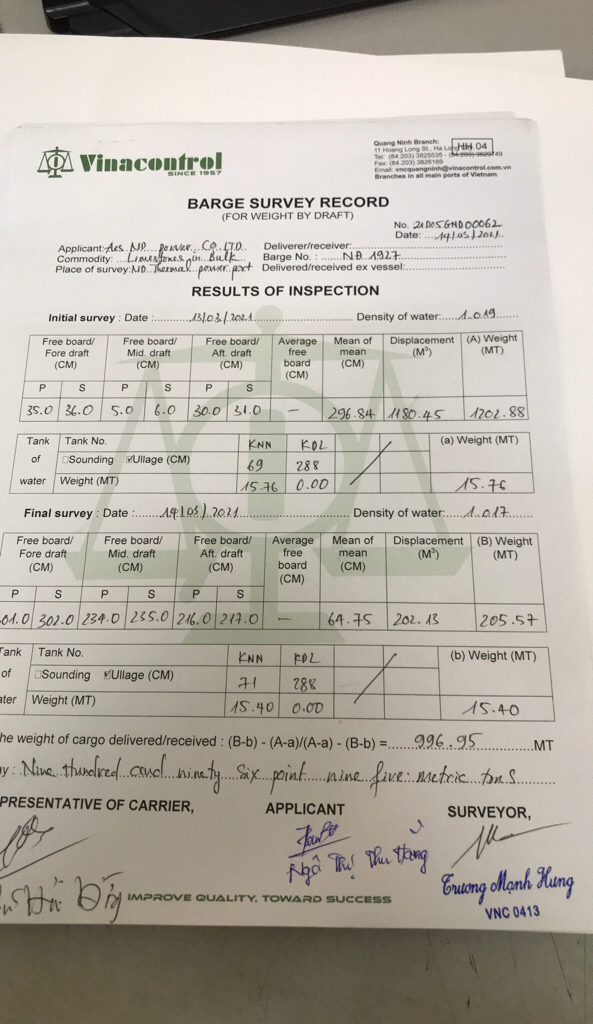 Vinacontrol
SINCE 1957
Quang Ninh Branch:
11 Hoang Long St., Ha Long
HH.04
Tel: (84.203) 3825535 -
Fax: (84.203) 3826169
Email: vncquangninh@vinacontrol.com.vn
Branches in all main ports of Vietnam
BARGE SURVEY RECORD
(FOR WEIGHT BY DRAFT)
No. 21D05GND00062
Date: 14/05/2021
Applicant: Aes ND power Co. LTD. Deliverer/receiver:
Commodity: Limestones in Bulk Barge No. : NĐ 1927
Place of survey: ND Thermal power port Delivered/received ex vessel:
RESULTS OF INSPECTION
Initial survey : Date : 13/05/2021 Density of water: 1.019
Free board/ Fore draft (CM) Free board/ Mid. draft (CM) Free board/ Aft. draft (CM) Average free board (CM) Mean of mean (CM) Displacement (M³) (A) Weight (MT)
P S P S P S
35.0 36.0 5.0 6.0 30.0 31.0 — 296.84 1180.45 1202.88
Tank of water Tank No. KNN KDL (a) Weight (MT)
□Sounding ☑Ullage (CM) 69 288
Weight (MT) 15.76 0.00 15.76
Final survey : Date : 14/05/2021 Density of water: 1.017
Free board/ Fore draft (CM) Free board/ Mid. draft (CM) Free board/ Aft. draft (CM) Average free board (CM) Mean of mean (CM) Displacement (M³) (B) Weight (MT)
P S P S P S
01.0 302.0 234.0 235.0 216.0 217.0 — 64.75 202.13 205.57
Tank of ater Tank No. KNN KDL (b) Weight (MT)
□Sounding ☑Ullage (CM) 71 288
Weight (MT) 15.40 0.00 15.40
he weight of cargo delivered/received : (B-b) - (A-a)/(A-a) - (B-b) = 996.95 MT
y : Nine hundred and ninety six point nine five metric tons
PRESENTATIVE OF CARRIER, APPLICANT SURVEYOR,
Ngô Thị Thu Hằng
Trương Mạnh Hùng
VNC 0413
IMPROVE QUALITY, TOWARD SUCCESS